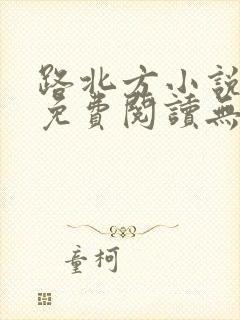 路北方小說
免費閱讀無
童柯